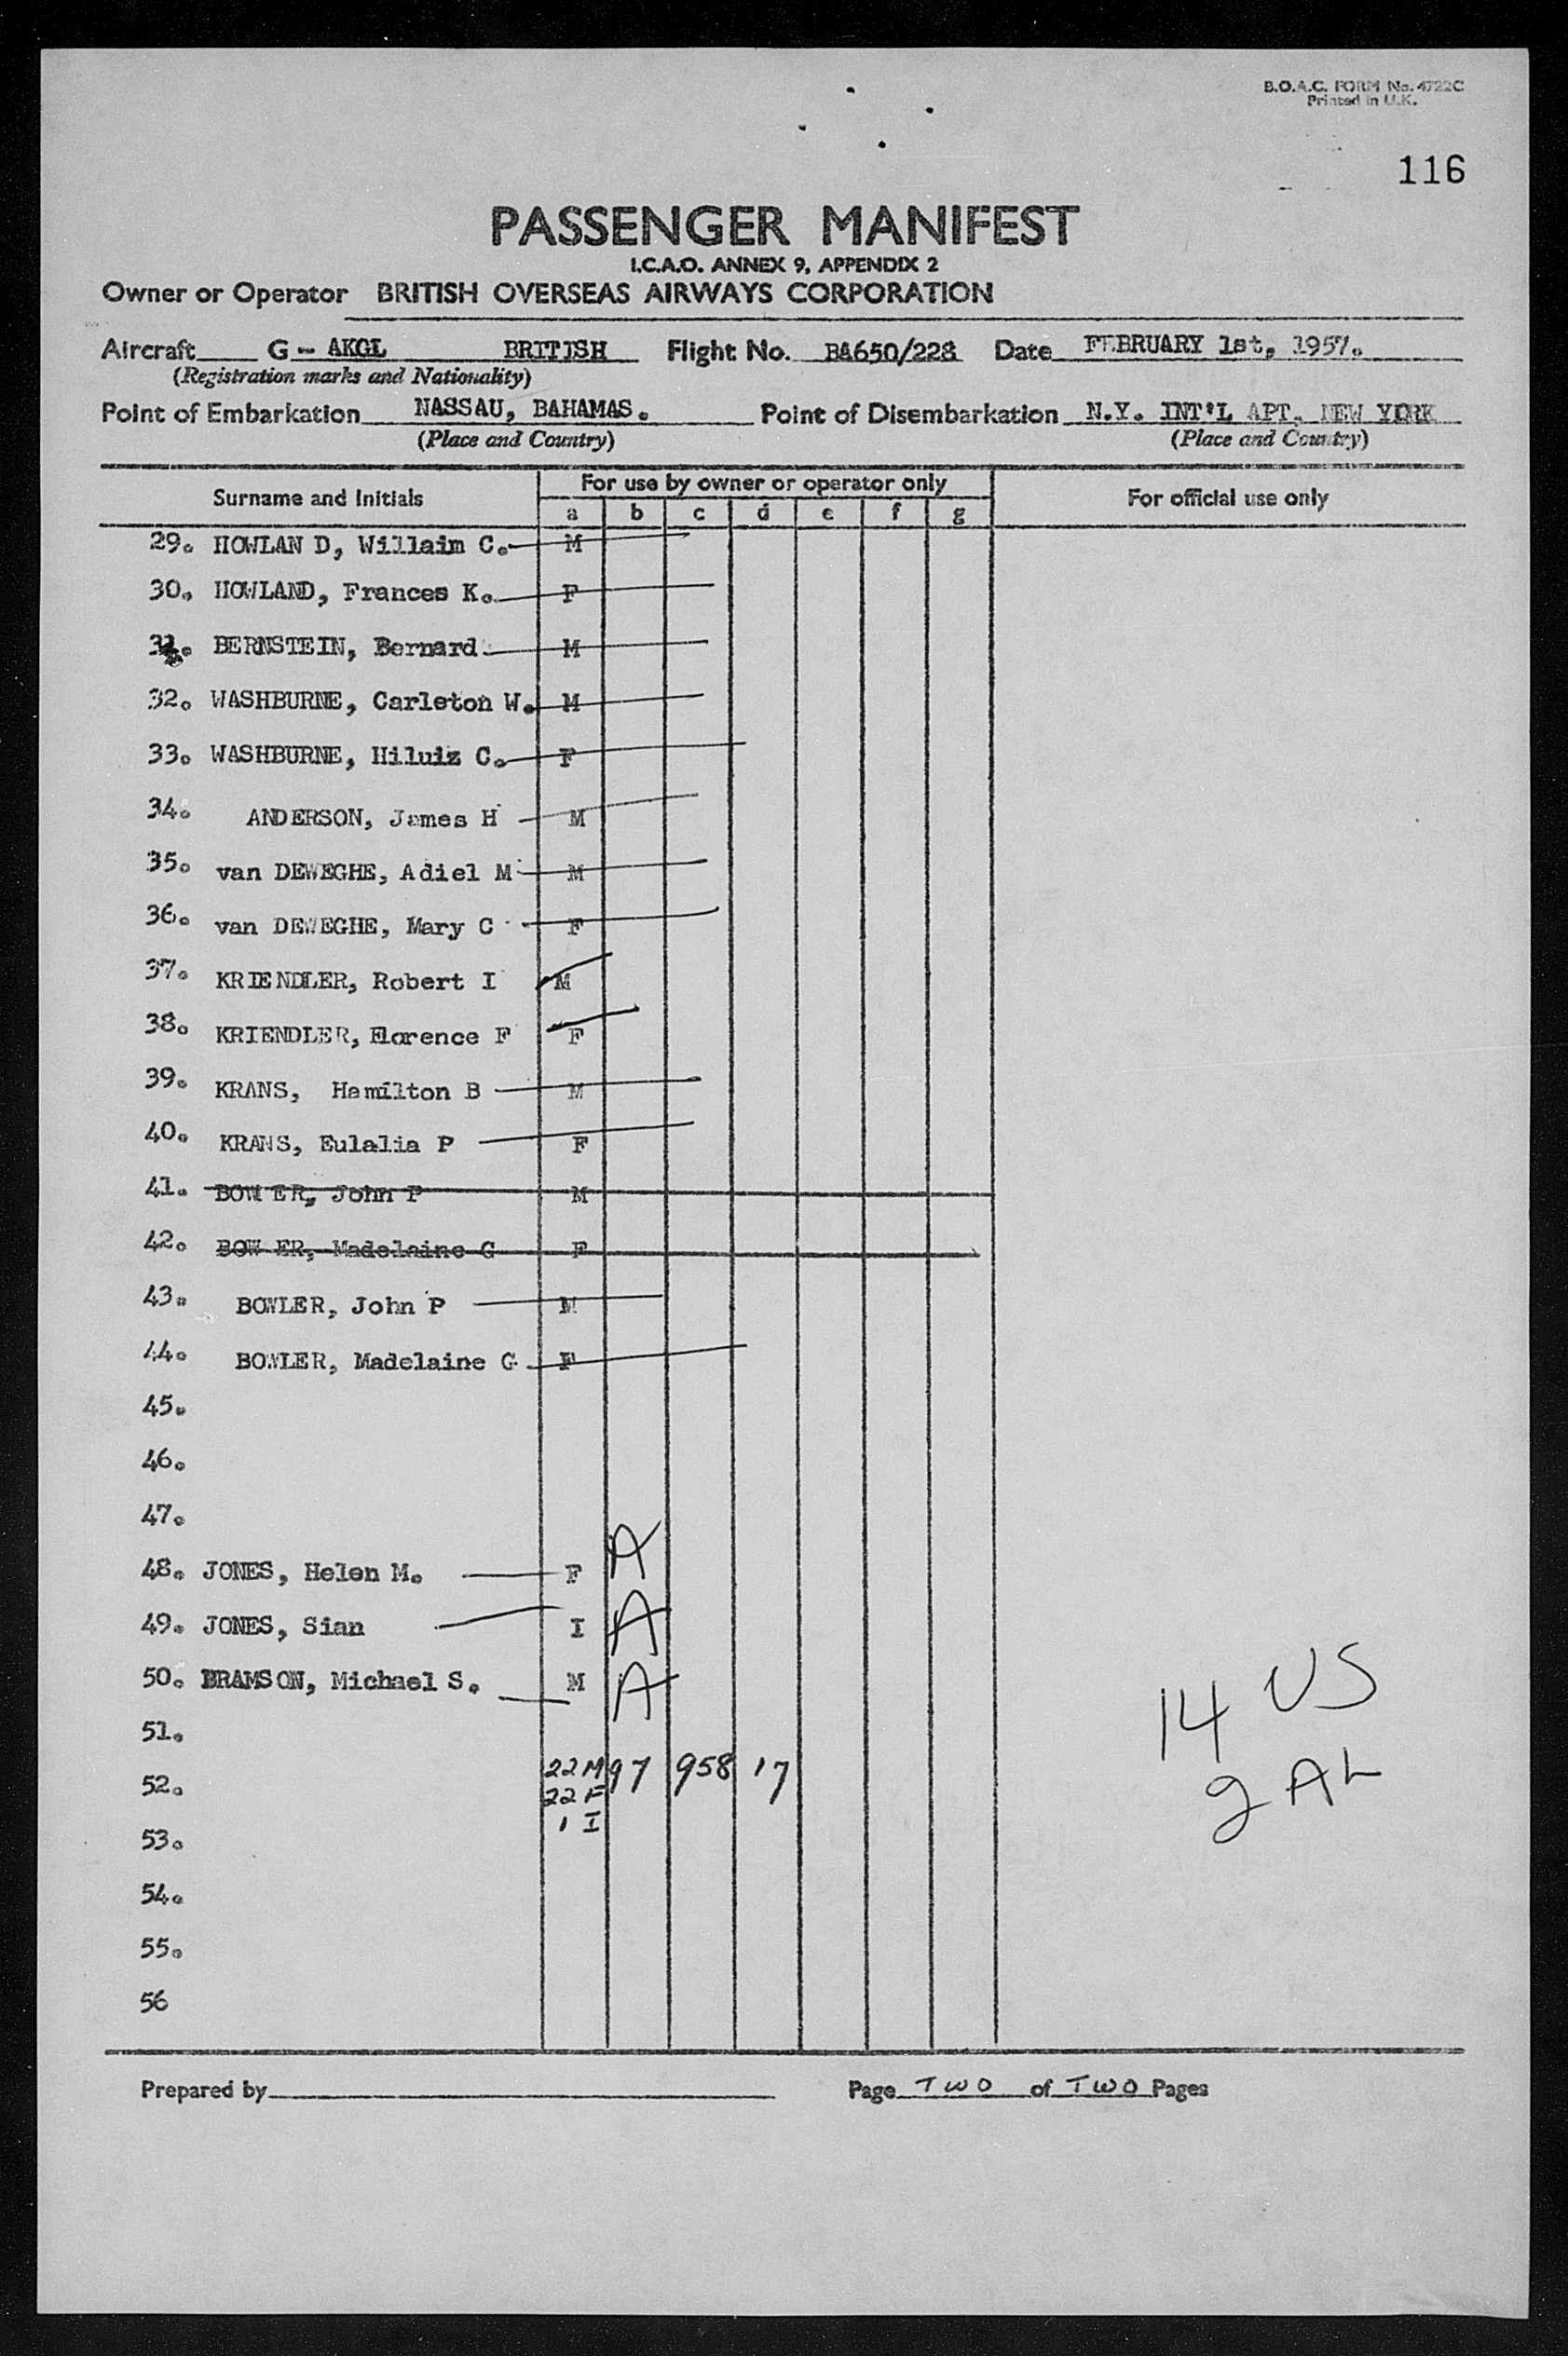 B.O.A.C. FORM No. 4722C
Printed in U.K.
116
PASSENGER MANIFEST
I.C.A.O. ANNEX 9, APPENDIX 2
Owner or Operator BRITISH OVERSEAS AIRWAYS CORPORATION
Aircraft G - AKGL BRITISH Flight No. BA650/228 Date FEBRUARY 1st, 1957.
(Registration marks and Nationality)
Point of Embarkation NASSAU, BAHAMAS. Point of Disembarkation N.Y. INT'L APT, NEW YORK
(Place and Country) (Place and Country)
Surname and Initials For use by owner or operator only For official use only
a b c d e f g
29. HOWLAN D, Willaim C. M
30. HOWLAND, Frances K. F
31. BERNSTEIN, Bernard M
32. WASHBURNE, Carleton W. M
33. WASHBURNE, Hiluiz C. F
34. ANDERSON, James H M
35. van DEWEGHE, Adiel M M
36. van DEWEGHE, Mary C F
37. KRIENDLER, Robert I M
38. KRIENDLER, Florence F F
39. KRANS, Hamilton B M
40. KRANS, Eulalia P F
41. BOW ER, John P M
42. BOW ER, Madelaine G F
43. BOWLER, John P M
44. BOWLER, Madelaine G F
45.
46.
47.
48. JONES, Helen M. F A
49. JONES, Sian I A
50. BRAMSON, Michael S. M A
14 US
51.
22 M 97 958 17
2 AL
52.
22 F
1 I
53.
54.
55.
56
Prepared by Page TWO of TWO Pages